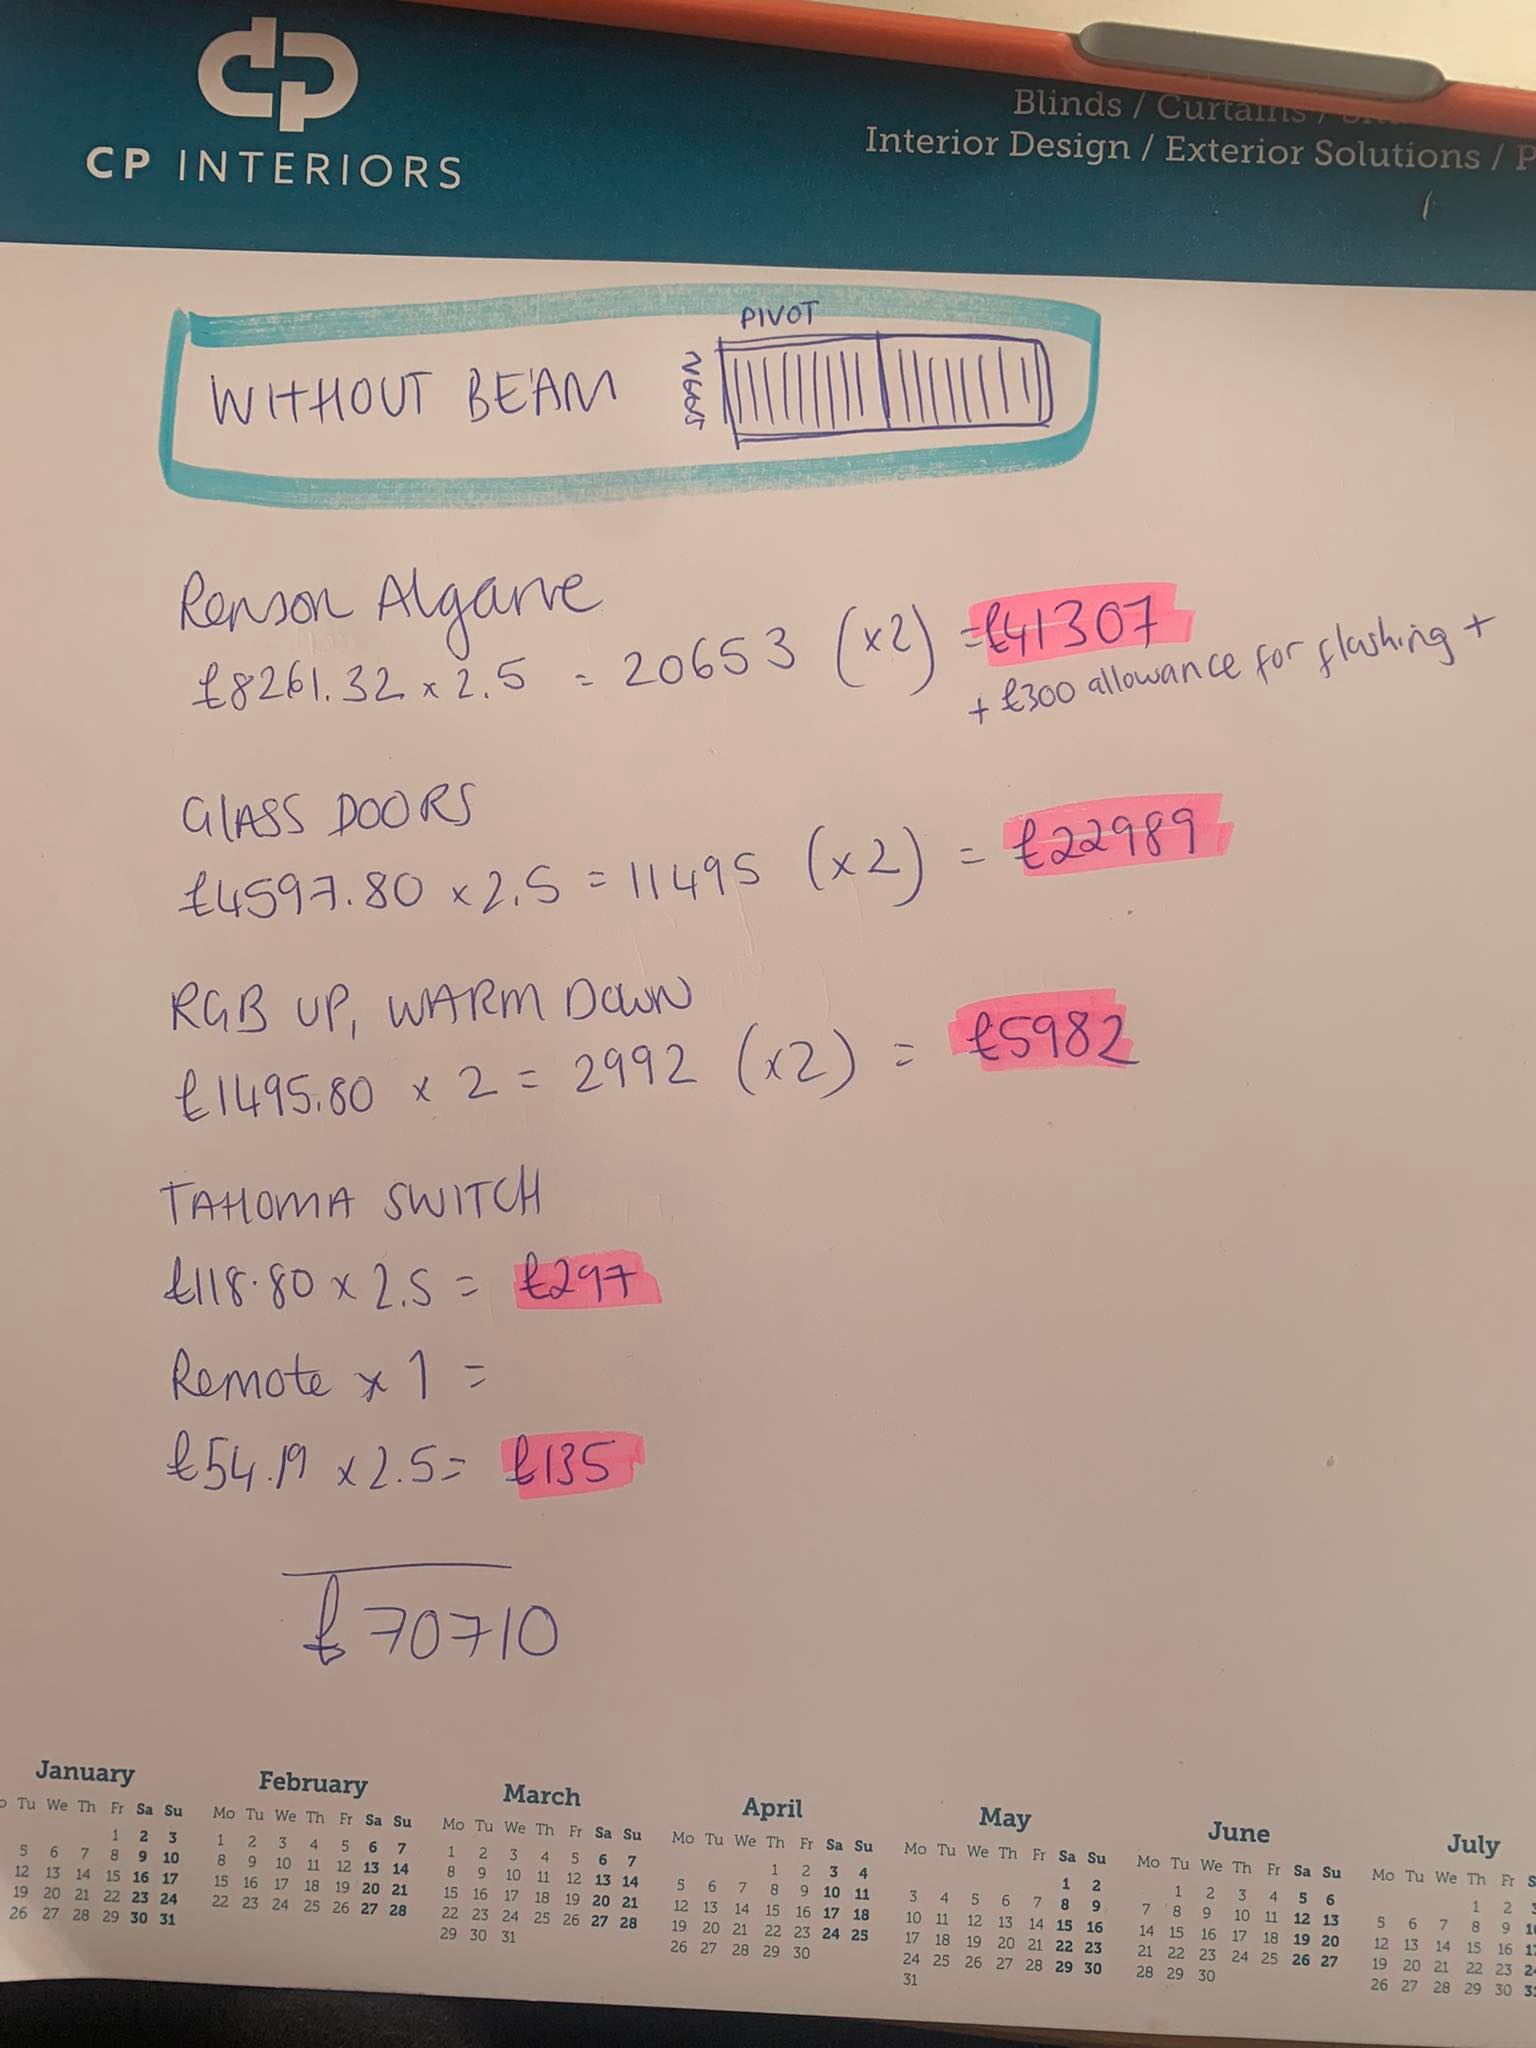 CP INTERIORS
Blinds / Curtains /
Interior Design / Exterior Solutions / P
PIVOT
WITHOUT BEAM
Renson Algarve
£8261.32 x 2.5 = 20653 (x2) = £41307
+ £300 allowance for flashing +
GLASS DOORS
£4597.80 x 2.5 = 11495 (x2) = £22989
RGB UP, WARM DOWN
£1495.80 x 2 = 2992 (x2) = £5982
TAHOMA SWITCH
£118.80 x 2.5 = £297
Remote x 1 =
£54.19 x 2.5 = £135
£70710
January February March April May June July
Tu We Th Fr Sa Su
1 2 3
5 6 7 8 9 10
12 13 14 15 16 17
19 20 21 22 23 24
26 27 28 29 30 31
Mo Tu We Th Fr Sa Su
1 2 3 4 5 6 7
8 9 10 11 12 13 14
15 16 17 18 19 20 21
22 23 24 25 26 27 28
Mo Tu We Th Fr Sa Su
1 2 3 4 5 6 7
8 9 10 11 12 13 14
15 16 17 18 19 20 21
22 23 24 25 26 27 28
29 30 31
Mo Tu We Th Fr Sa Su
1 2 3 4
5 6 7 8 9 10 11
12 13 14 15 16 17 18
19 20 21 22 23 24 25
26 27 28 29 30
Mo Tu We Th Fr Sa Su
1 2
3 4 5 6 7 8 9
10 11 12 13 14 15 16
17 18 19 20 21 22 23
24 25 26 27 28 29 30
31
Mo Tu We Th Fr Sa Su
1 2 3 4 5 6
7 8 9 10 11 12 13
14 15 16 17 18 19 20
21 22 23 24 25 26 27
28 29 30
Mo Tu We Th Fr S
1 2 3
5 6 7 8 9 10
12 13 14 15 16 17
19 20 21 22 23 24
26 27 28 29 30 31